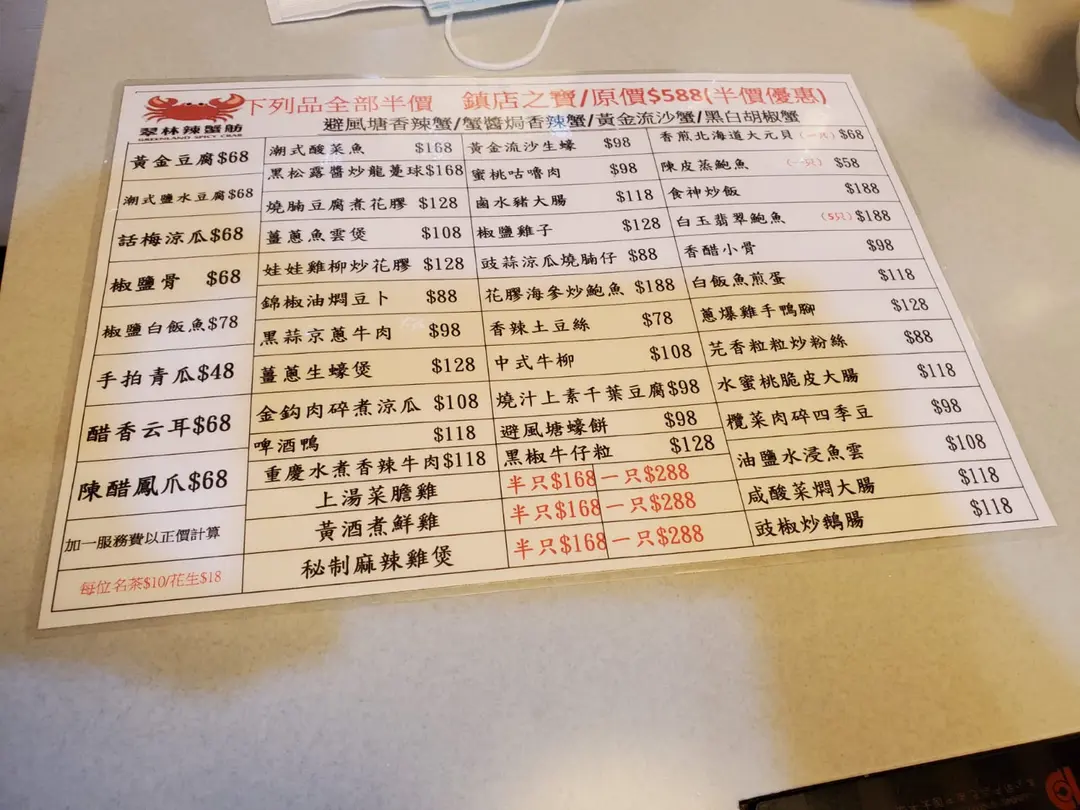 翠林辣蟹舫
GREENLAND SPICY CRAB
下列品全部半價 鎮店之寶/原價$588(半價優惠)
避風塘香辣蟹/蟹醬焗香辣蟹/黃金流沙蟹/黑白胡椒蟹
黃金豆腐$68
潮式鹽水豆腐$68
話梅涼瓜$68
椒鹽骨 $68
椒鹽白飯魚$78
手拍青瓜$48
醋香云耳$68
陳醋鳳爪$68
加一服務費以正價計算
每位名茶$10/花生$18
潮式酸菜魚 $168
黑松露醬炒龍躉球$168
燒腩豆腐煮花膠 $128
薑蔥魚雲煲 $108
娃娃雞柳炒花膠 $128
錦椒油燜豆卜 $88
黑蒜京蔥牛肉 $98
薑蔥生蠔煲 $128
金鈎肉碎煮涼瓜 $108
啤酒鴨 $118
重慶水煮香辣牛肉$118
上湯菜膽雞 半只$168 一只$288
黃酒煮鮮雞 半只$168 一只$288
秘制麻辣雞煲 半只$168 一只$288
黃金流沙生蠔 $98
蜜桃咕嚕肉 $98
鹵水豬大腸 $118
椒鹽雞子 $128
豉蒜涼瓜燒腩仔 $88
花膠海參炒鮑魚 $188
香辣土豆絲 $78
中式牛柳 $108
燒汁上素千葉豆腐$98
避風塘蠔餅 $98
黑椒牛仔粒 $128
香煎北海道大元貝(一只)$68
陳皮蒸鮑魚 (一只) $58
食神炒飯 $188
白玉翡翠鮑魚 (5只)$188
香醋小骨 $98
白飯魚煎蛋 $118
蔥爆雞手鴨腳 $128
芫香粒粒炒粉絲 $88
水蜜桃脆皮大腸 $118
欖菜肉碎四季豆 $98
油鹽水浸魚雲 $108
咸酸菜燜大腸 $118
豉椒炒鵝腸 $118